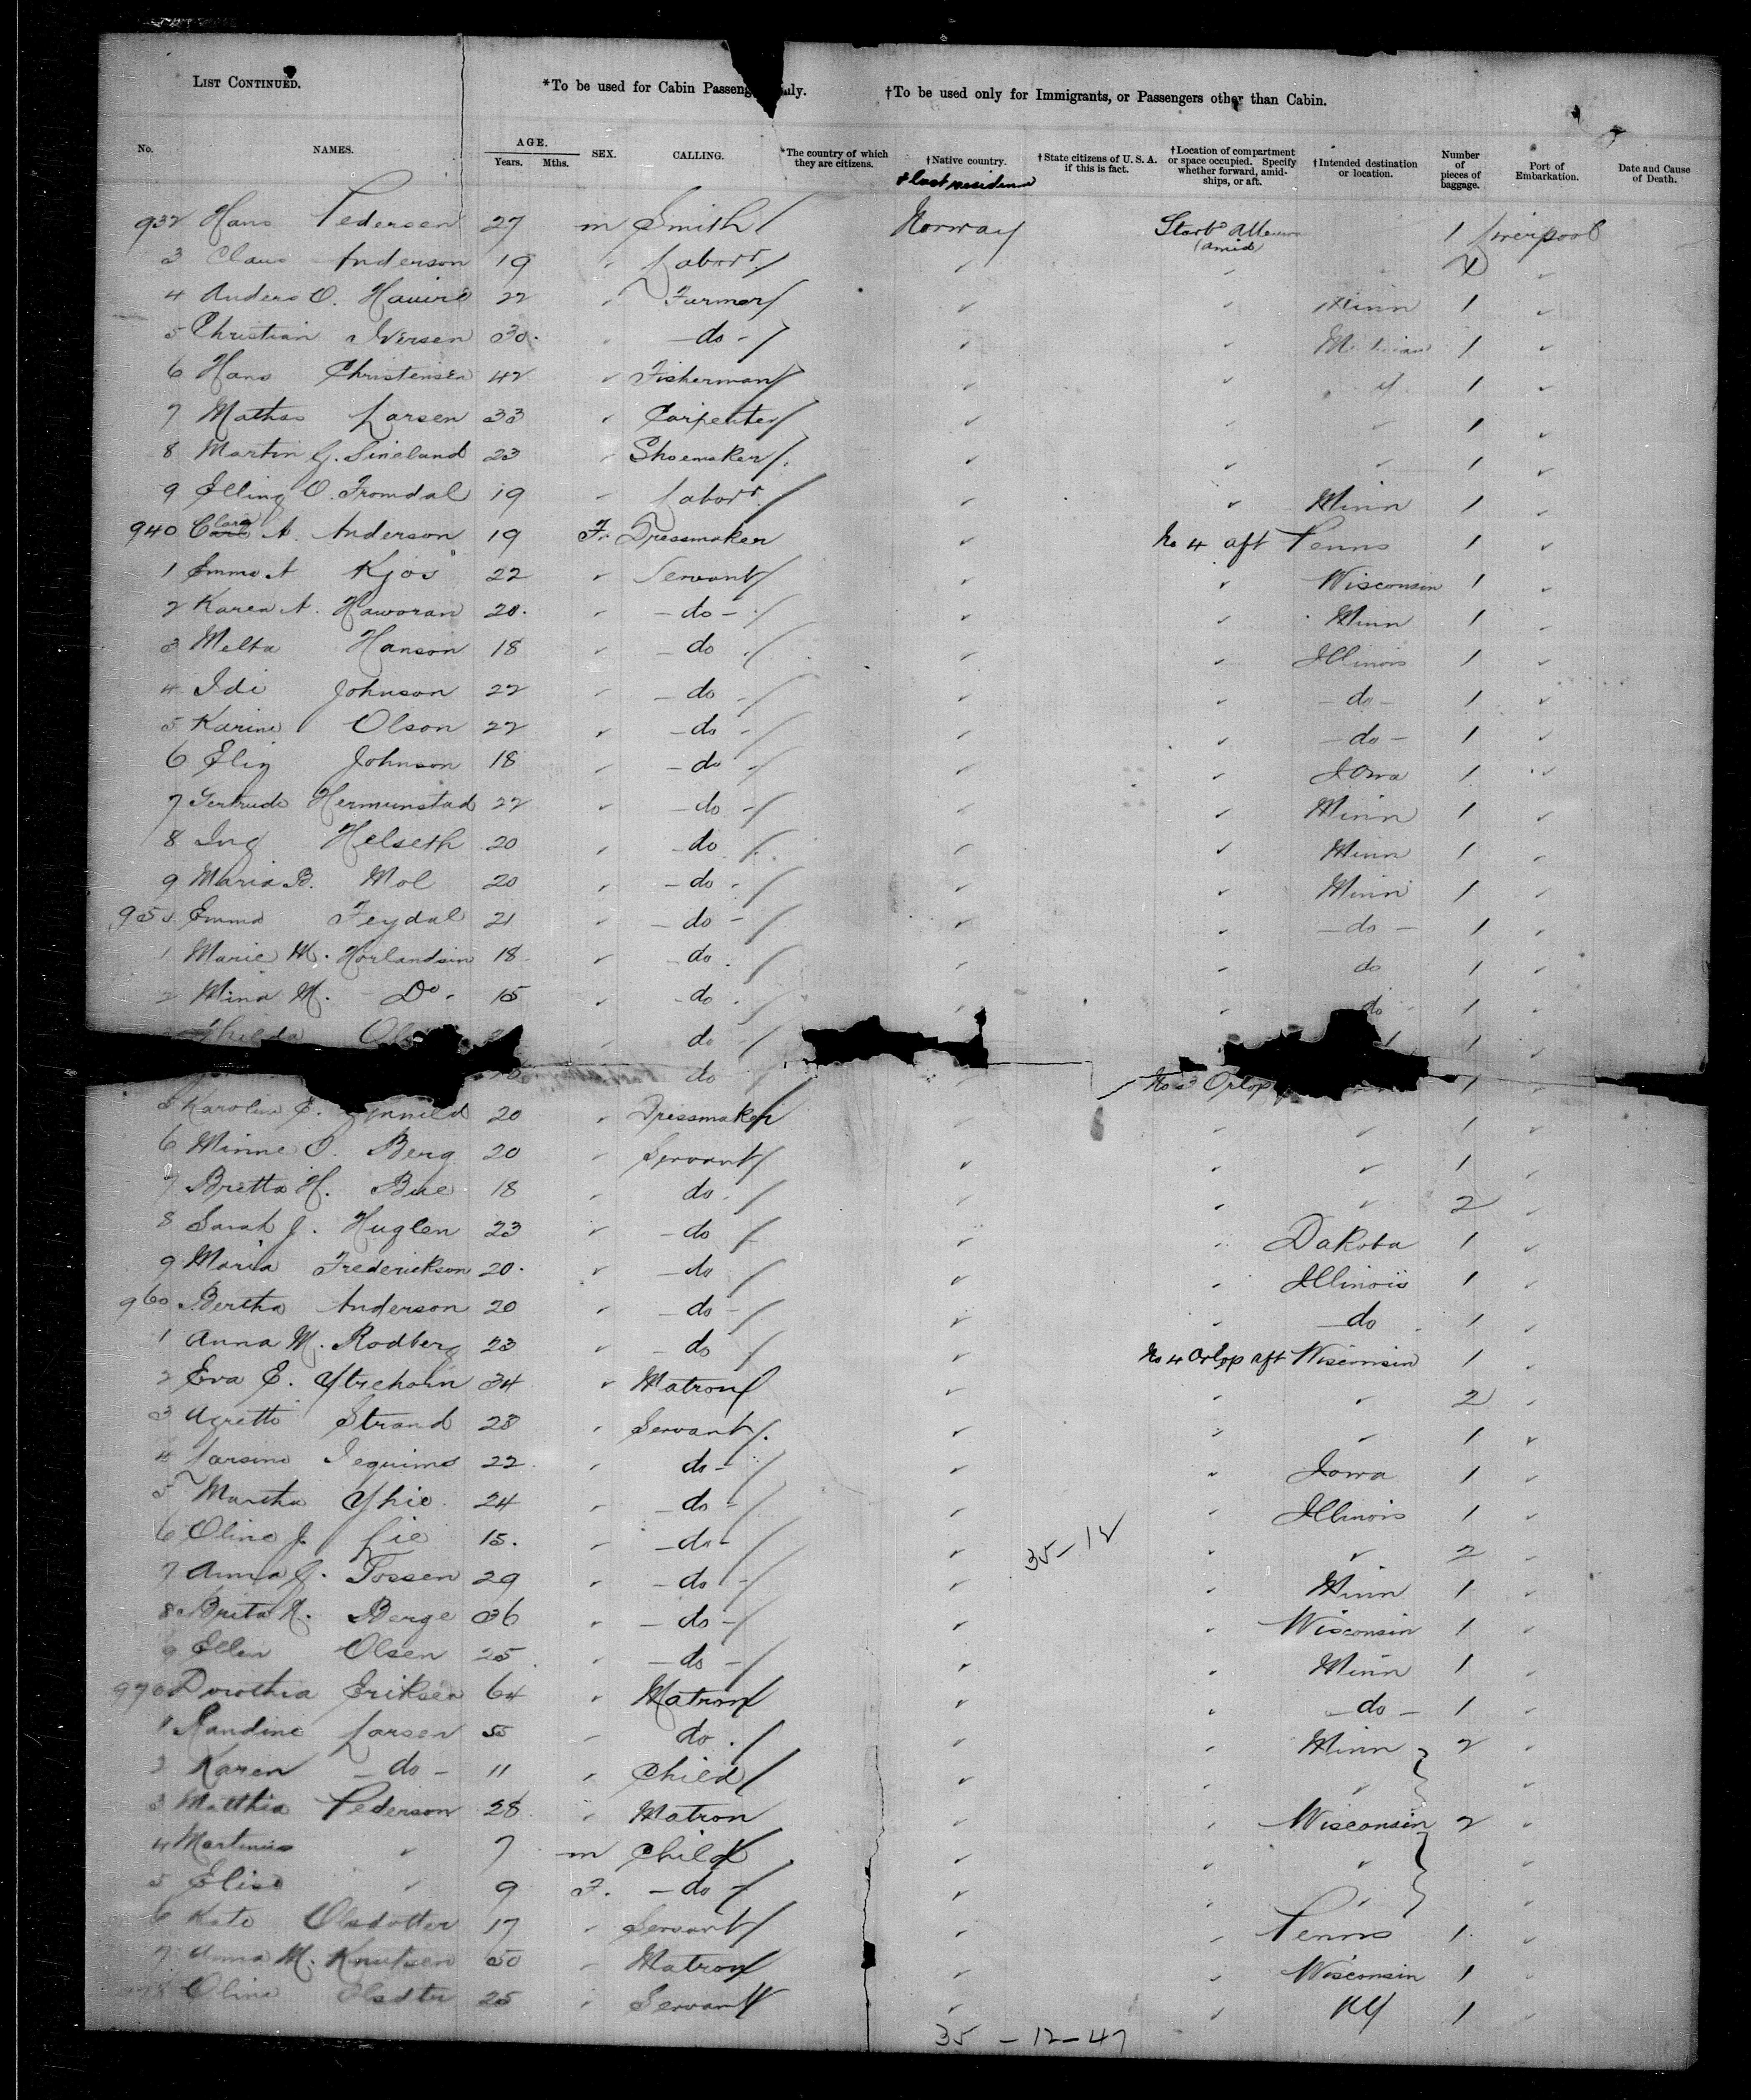 LIST CONTINUED. *To be used for Cabin Passeng ly. †To be used only for Immigrants, or Passengers other than Cabin.
No. NAMES. AGE. Years. Mths. SEX. CALLING. *The country of which they are citizens. †Native country. †State citizens of U. S. A. if this is fact. †Location of compartment or space occupied. Specify whether forward, amid-ships, or aft. †Intended destination or location. Number of pieces of baggage. Port of Embarkation. Date and Cause of Death.
& last residence
932 Hans Pedersen 27 m Smith Norway Starb (Amid) 1 Liverpool
3 Claus Anderson 19 " Labort " " "
4 Anders O. 22 " Farmer " " Minn 1 "
5 Christian Iversen 30 " do " " 1 "
6 Hans Christensen 42 " Fisherman " " 1 "
7 Mathas Larsen 33 " Carpenter " " " 1 "
8 Martin G. Sineland 23 " Shoemaker " " " 1 "
9 Elling O. Fromdal 19 " Labort " " Minn 1 "
940 Clara A. Anderson 19 F. Dressmaker " No 4 aft Penns 1 "
1 Emma A Kjos 22 " Servant " " Wisconsin 1 "
2 Karen A. Haworan 20 " do " " Minn 1 "
3 Melta Hanson 18 " do " " Illinois 1 "
4 Idi Johnson 22 " do " " do 1 "
5 Karine Olson 22 " do " " do 1 "
6 Elig Johnson 18 " do " " Iowa 1 "
7 Gertrude Hermunstad 22 " do " " Minn 1 "
8 Ing Helseth 20 " do " " Minn 1 "
9 Maria B. Mol 20 " do " " Minn 1 "
950 Emma Feydal 21 " do " " do 1 "
1 Marie M. Horlandsin 18 " do " " do 1 "
2 Mina M. Do 15 " do " " do 1 "
Ol " do 1 "
do " Orlop 1 "
5 Karoline E. 20 " Dressmaker " " " 1 "
6 Minne O. Berg 20 " Servant " " " 1 "
7 Bretta H. Bue 18 " do " " " 2 "
8 Sarah J. Huglen 23 " do " " Dakota 1 "
9 Maria Frederickson 20 " do " " Illinois 1 "
960 Bertha Anderson 20 " do " " do 1 "
1 Anna M. Rodberg 23 " do " No 4 Orlop aft Wisconsin 1 "
2 Eva E. Ytrehorn 34 " Matron " " " 2 "
3 Agretto Strand 28 " Servant " " " 1 "
4 Larsine 22 " do " " Iowa 1 "
5 Martha 24 " do " " Illinois 1 "
6 Oline J. Lie 15 " do " 35-12 " " 2 "
7 Anna G. Tossen 29 " do " " Minn 1 "
8 Brita K. Berge 36 " do " " Wisconsin 1 "
9 Ellen Olsen 25 " do " " Minn 1 "
970 Dorothia Eriksen 64 " Matron " " do 1 "
1 Randine Larsen 55 " do " " Minn 2 "
2 Karen do 11 " Child " " " "
3 Matthia Pederson 28 " Matron " " Wisconsin 2 "
4 Martinus " 7 m Child " " " "
5 Elise " 9 F. do " " " "
6 Kate Olsdotter 17 " Servant " " Penns 1 "
7 Anna M. Knutsen 50 " Matron " " Wisconsin 1 "
978 Oline Olsdter 25 " Servant " " NY 1
35 - 12 - 47